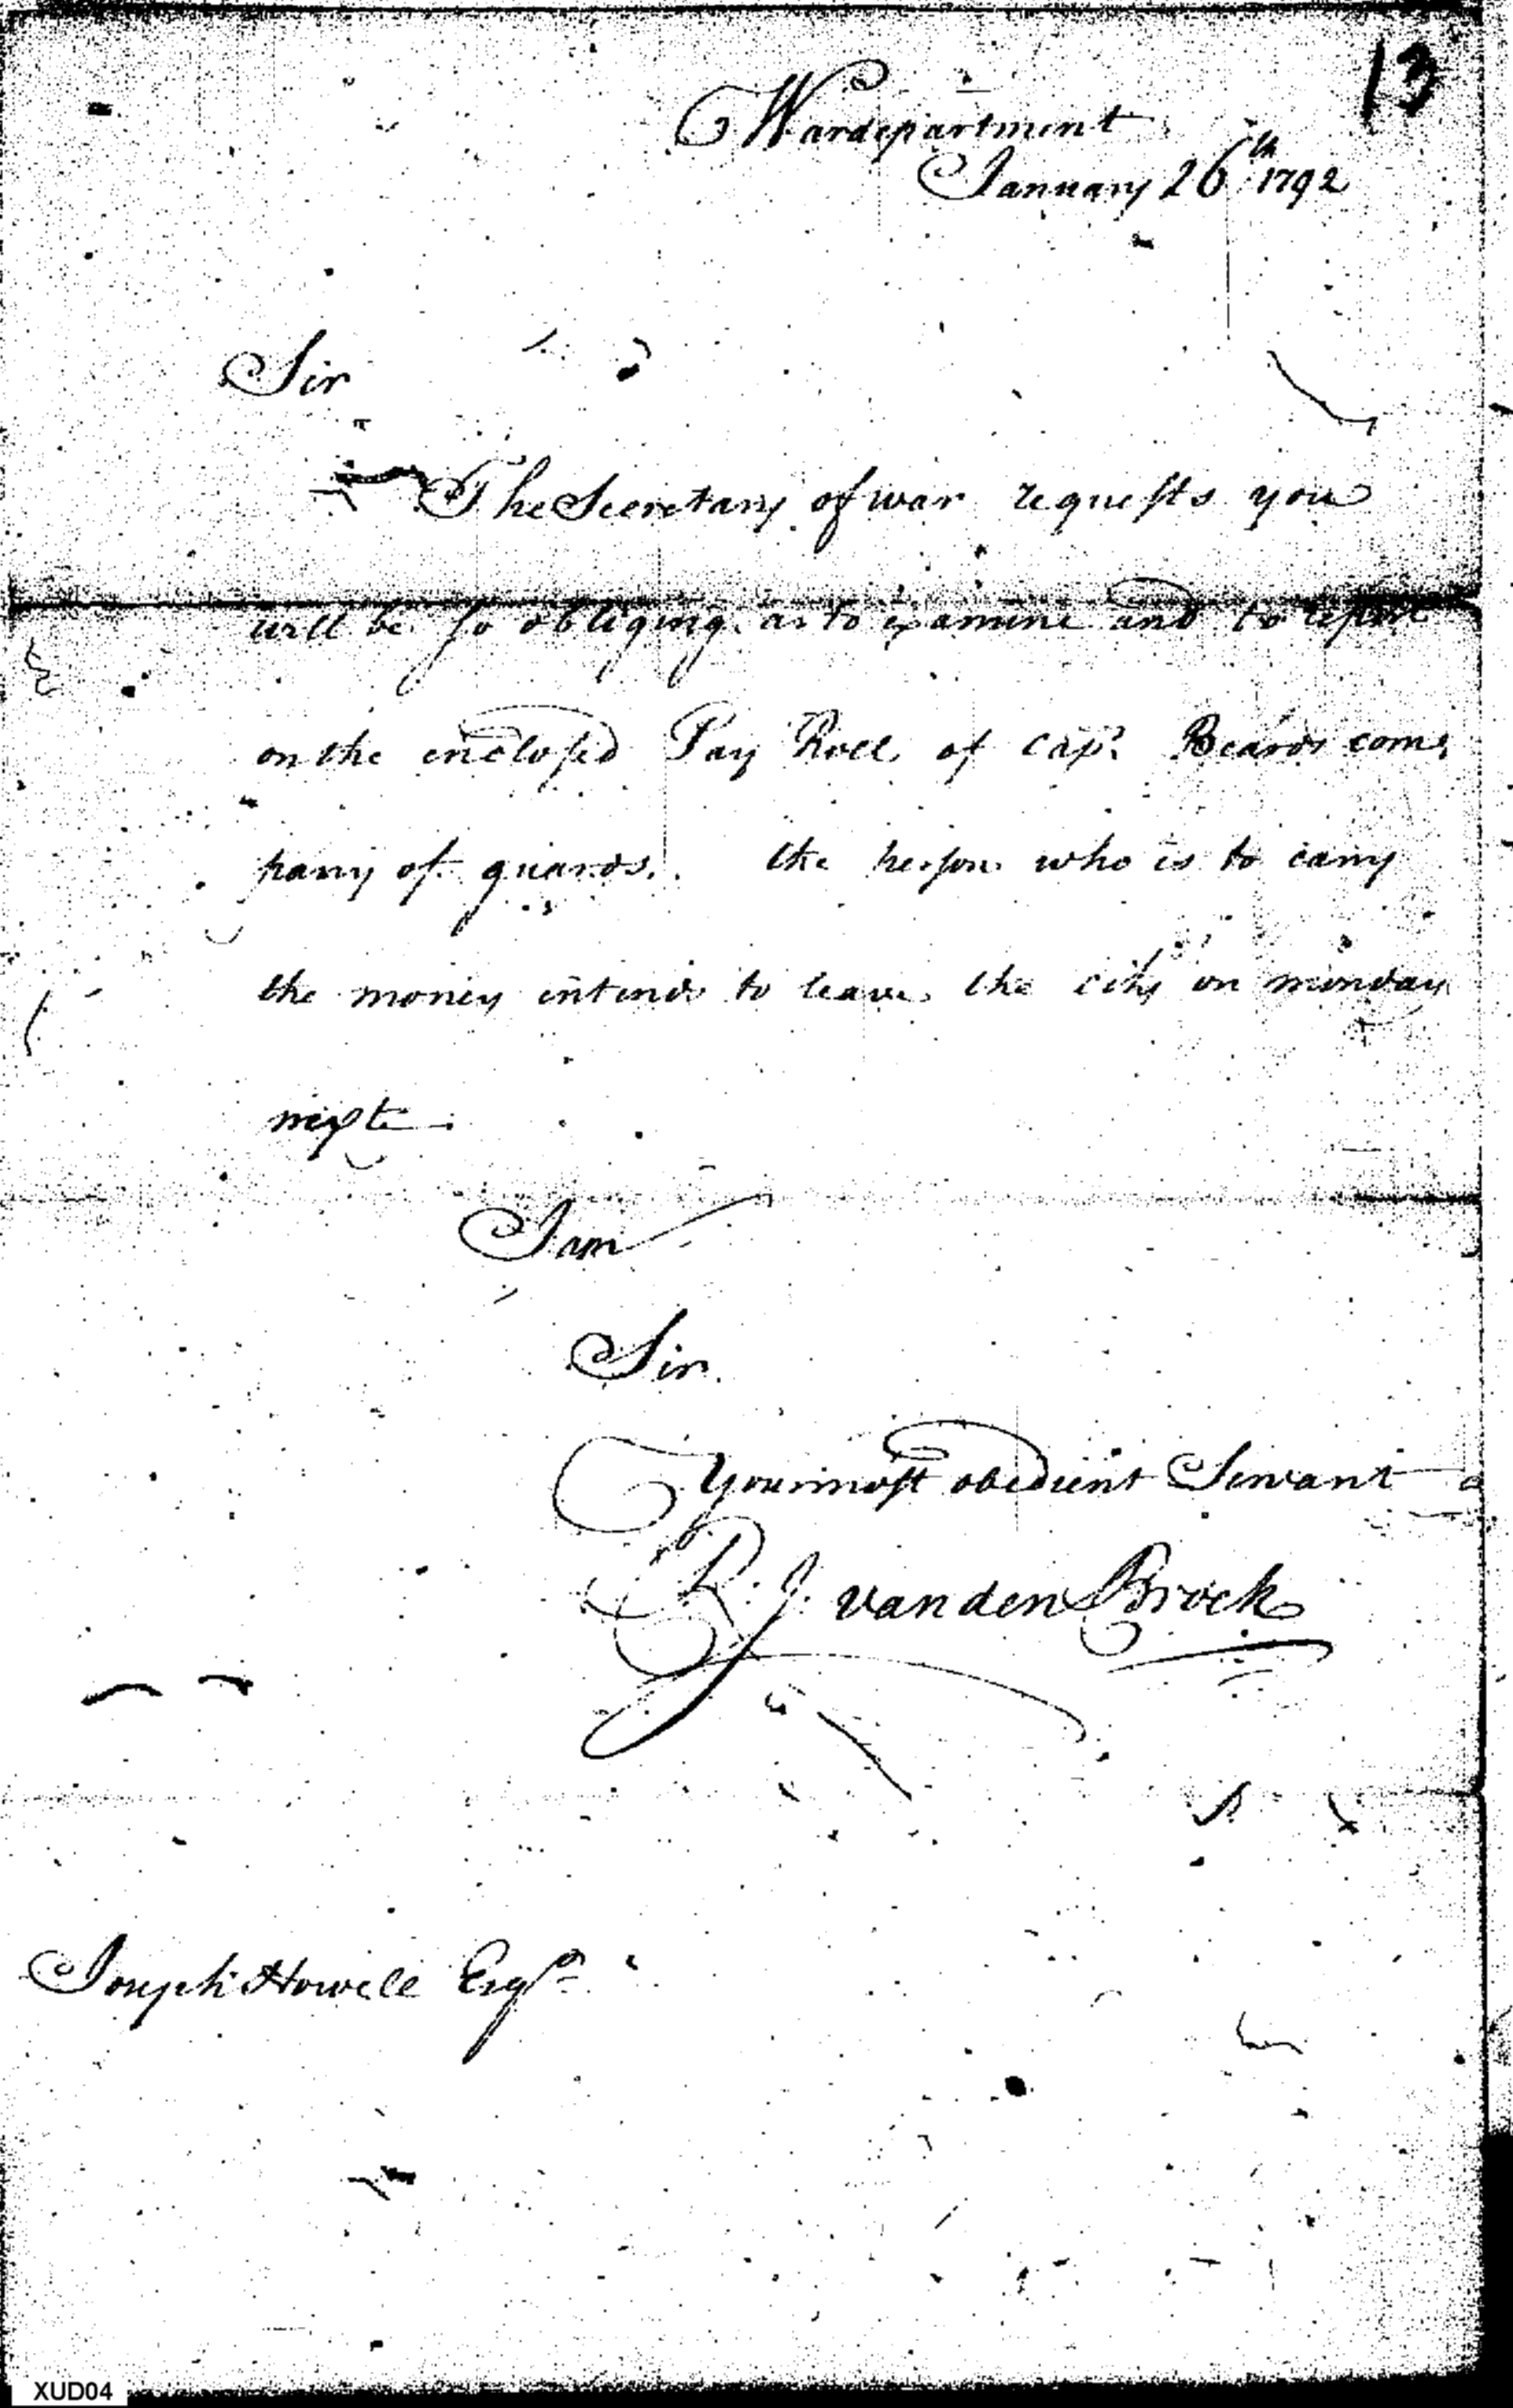 13
Wardepartment
January 26th 1792
Sir
The Secretary of war requests you
will be so obliging as to examine and to report
on the enclosed Pay Roll of Capt. Beards com,
pany of guards. the person who is to carry
the money intends to leave the city on monday
next.
I am
Sir.
Your most obedient Servant
R. J. van den Broek
Joseph Howell Esqr.
XUD04